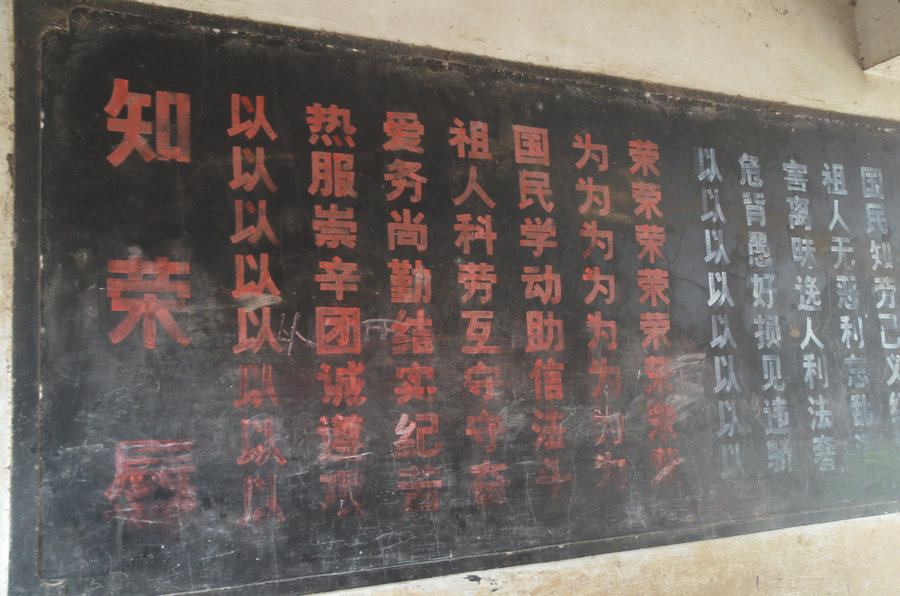 知荣辱
以热爱祖国为荣 以危害祖国
以服务人民为荣 以背离人民
以崇尚科学为荣 以愚昧无知
以辛勤劳动为荣 以好逸恶劳
以团结互助为荣 以损人利己
以诚实守信为荣 以见利忘义
以遵纪守法为荣 以违法乱纪
以艰苦奋斗为荣 以骄奢